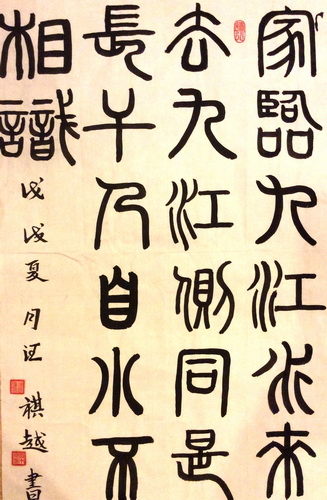 家臨九江水來
去九江側同是
長干人自小不
相識
戊戌夏月汪祺越書